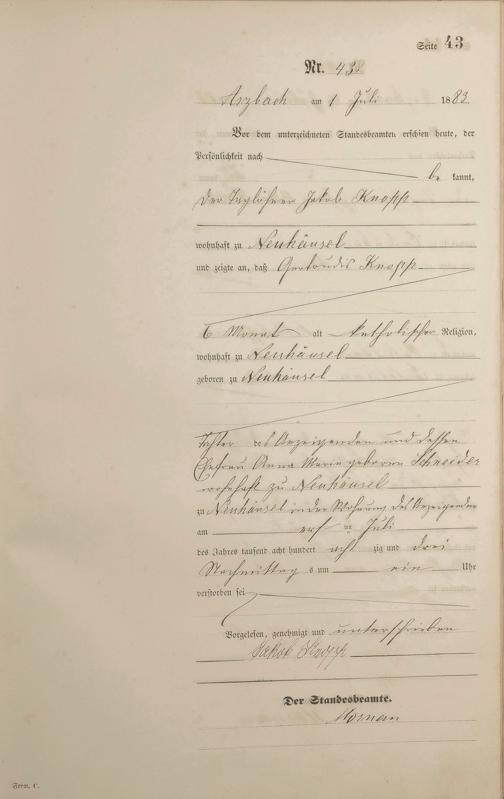 Seite 43
Nr. 43.
Arzbach am 1 Juli 1883
Vor dem unterzeichneten Standesbeamten erschien heute, der
Persönlichkeit nach
be kannt,
der Taglöhner Jakob Knopp
wohnhaft zu Neuhäusel
und zeigte an, daß Gertrudis Knopp
6 Monat alt katholischer Religion,
wohnhaft zu Neuhäusel
geboren zu Neuhäusel
Tochter des Anzeigenden und dessen
Ehefrau Anna Maria geborene Schneider
wohnhaft zu Neuhäusel
zu Neuhäusel in der Wohnung des Anzeigenden
am Juli
des Jahres tausend acht hundert acht zig und drei
Nachmittag s um ein Uhr
verstorben sei
Vorgelesen, genehmigt und unterschrieben
Jakob Knopp
Der Standesbeamte.
Form. C.